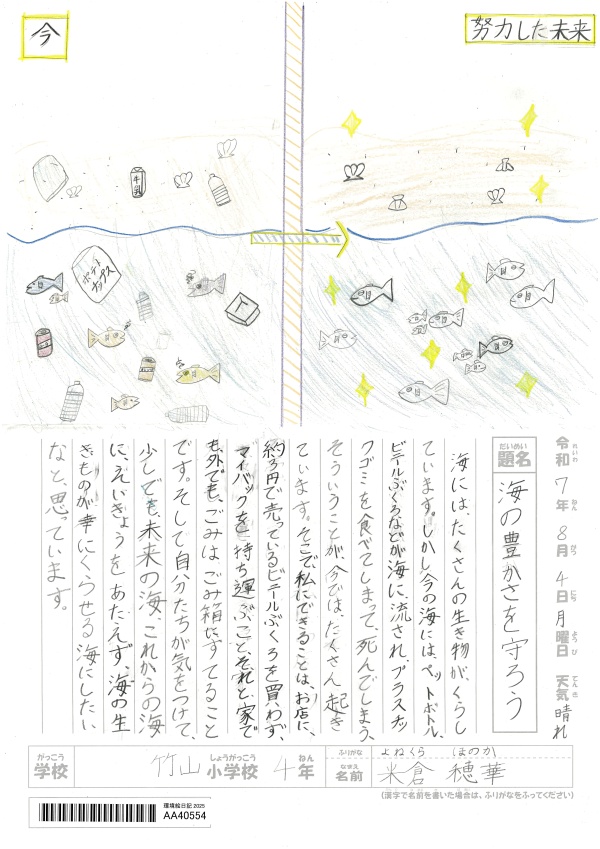 今
努力した未来
牛乳
ポテトチップス
令和7年8月4日月曜日 天気 晴れ
れいわ ねん がつ にち ようび てんき
だいめい
題名 海の豊かさを守ろう
海には、たくさんの生き物が、くらし
ています。しかし、今の海には、ペットボトル、
ビニールぶくろなどが海に、流され、プラスチッ
クゴミを食べてしまって、死んでしまう、
そういうことが、今では、たくさん起き
ています。そこで、私にできることは、お店に、
約3円で売っているビニールぶくろを買わず、
マイバックを持ち運ぶこと、それと、家で
も、外でも、ごみは、ごみ箱にすてること
です。そして、自分たちが気をつけて、
少しでも、未来の海、これからの海
に、えいきょうをあたえず、海の生
きものが幸にくらせる海にしたい
なと、思っています。
がっこう しょうがっこう ねん ふりがな よねくら ほのか
学校 竹山小学校 4年 なまえ 名前 米倉 穂華
(漢字で名前を書いた場合は、ふりがなをふってください)
環境絵日記 2025
AA40554